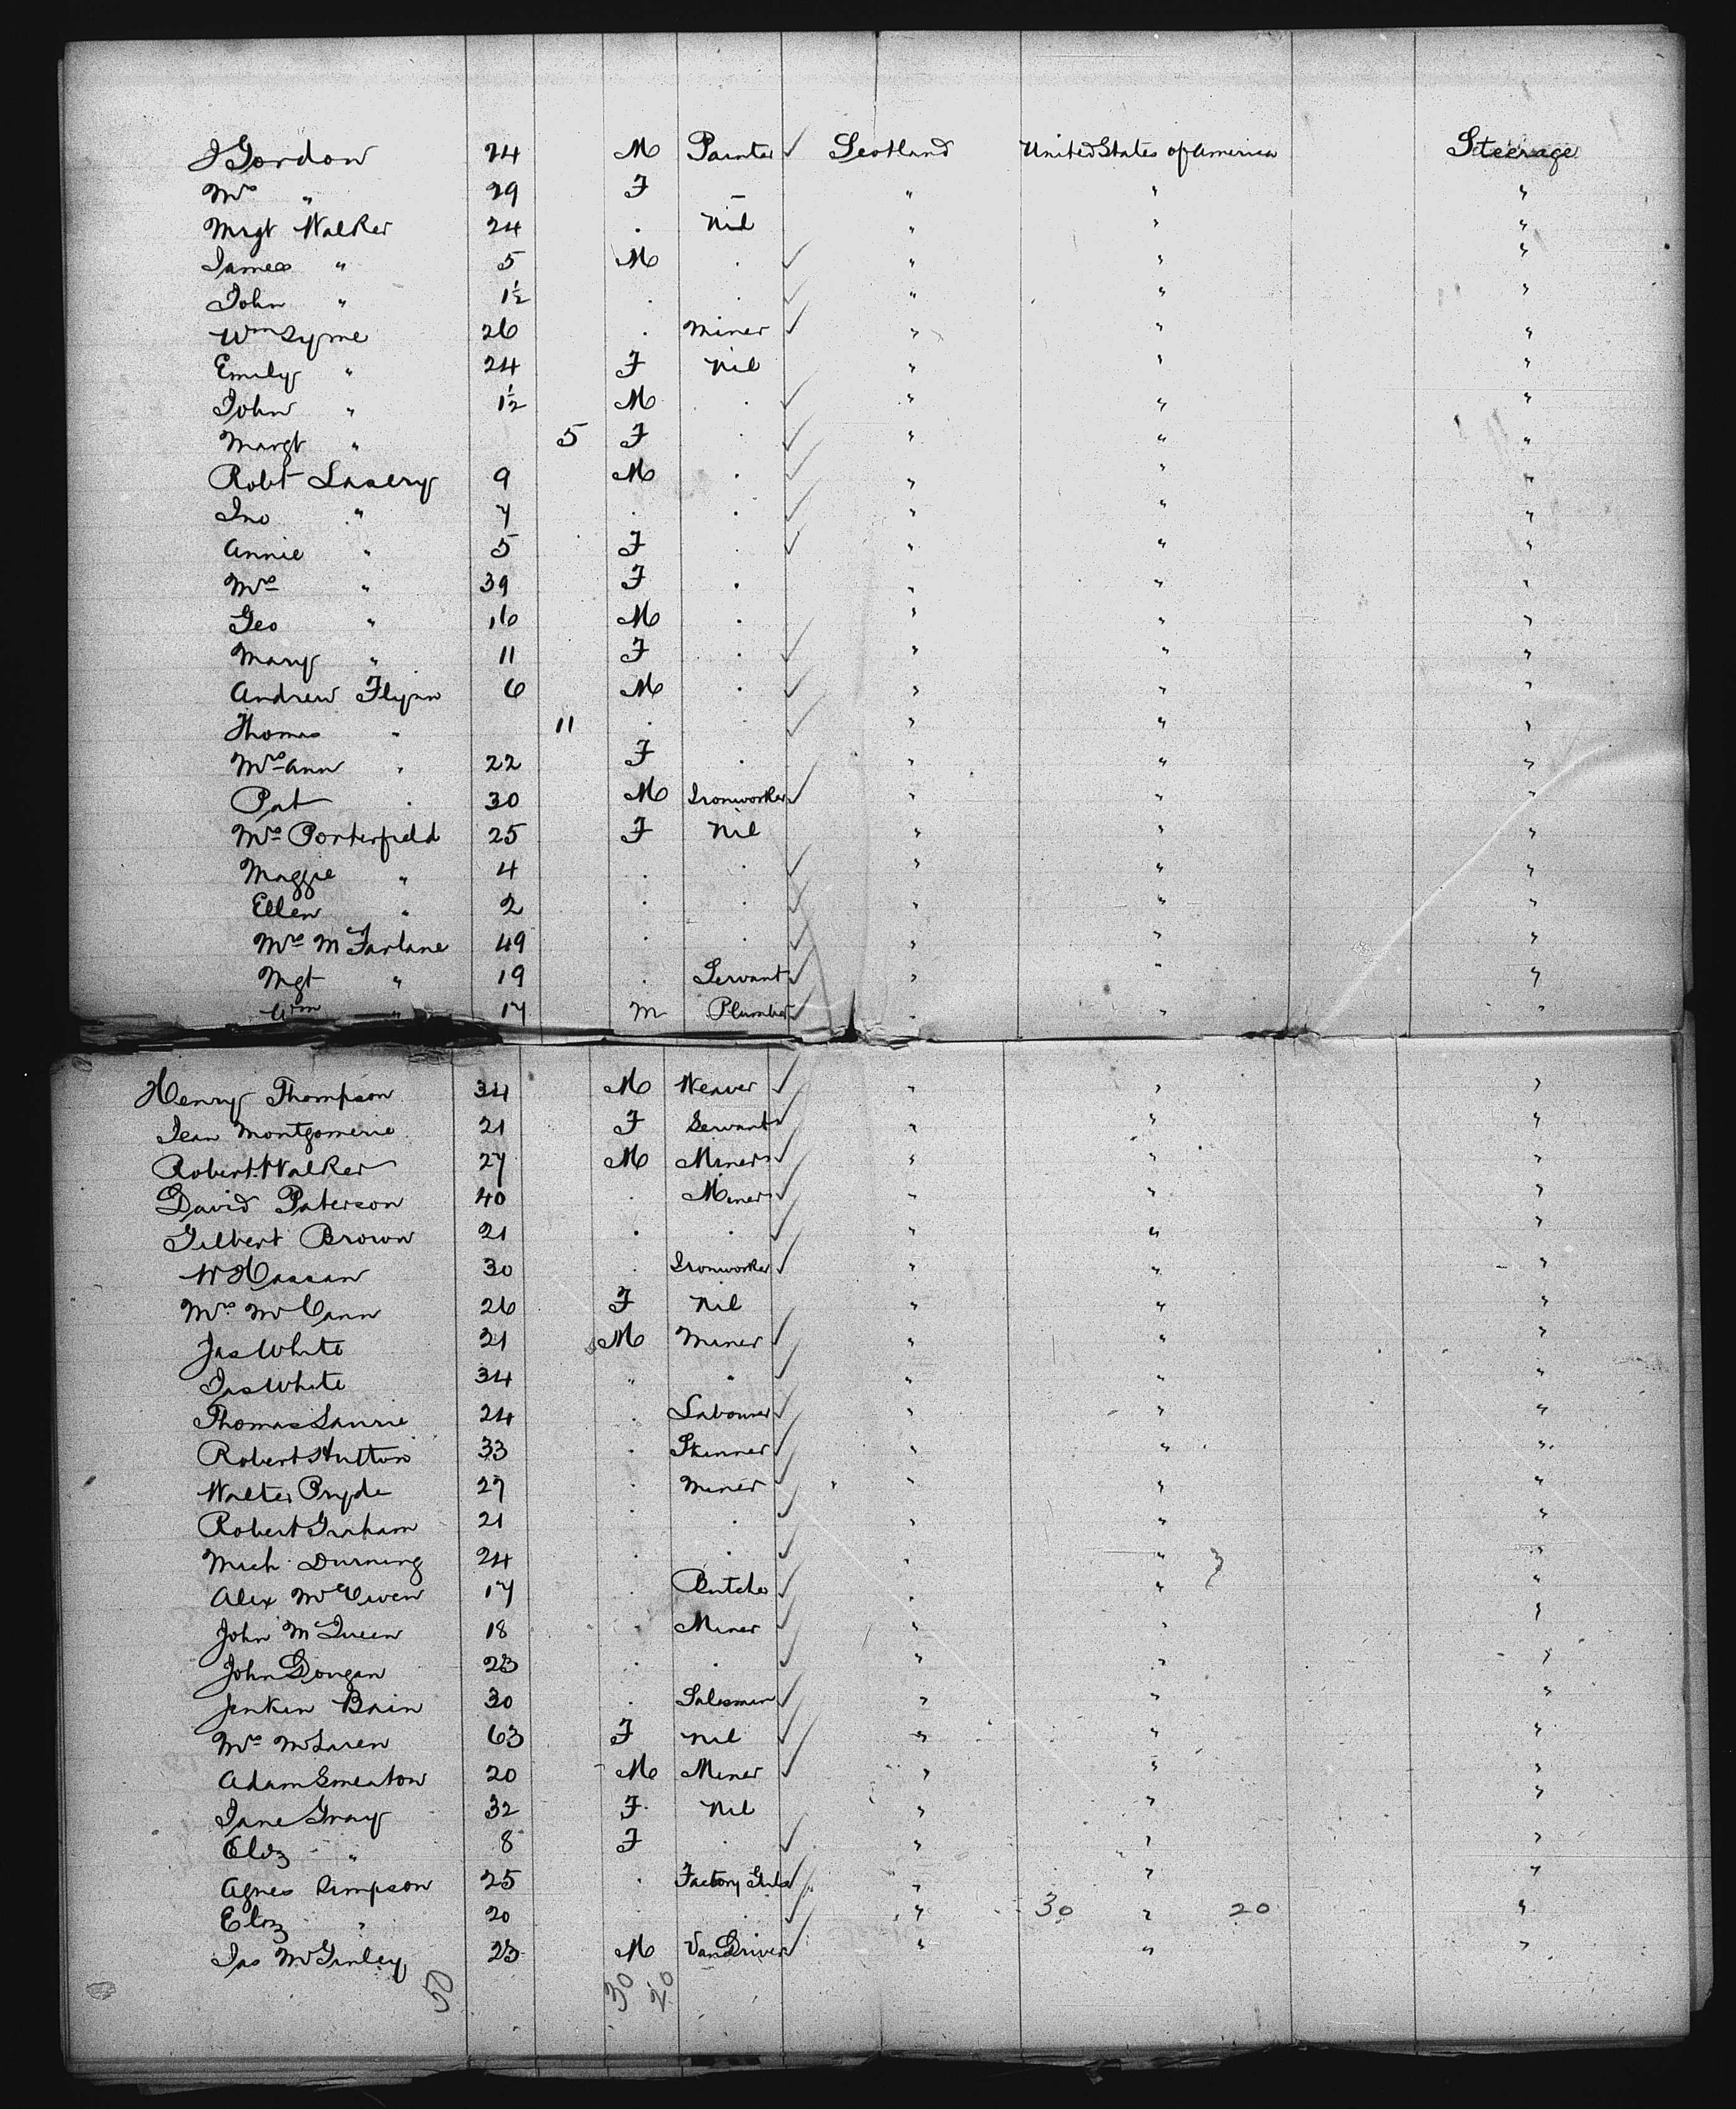 J Gordon 24 M Painter ✓ Scotland United States of America Steerage
Mrs " 29 F – " " "
Mrgt Walker 24 . Nil " " "
James " 5 M . ✓ " " "
John " 1½ . . ✓ " " "
Wm Syme 26 . Miner ✓ " " "
Emily " 24 F Nil " " "
John " 1½ M . ✓ " " "
Margt " 5 F . ✓ " " "
Robt 9 M . ✓ " " "
Jno " 7 . . ✓ " " "
Annie " 5 F . ✓ " " "
Mrs " 39 F . " " "
Geo " 16 M . " " "
Mary " 11 F . ✓ " " "
Andrew Flynn 6 M . ✓ " " "
Thomas " 11 . . ✓ " " "
Mrs Ann " 22 F . " " "
Pat . 30 M Ironworker ✓ " " "
Mrs Porterfield 25 F Nil " " "
Maggie " 4 . . ✓ " " "
Ellen " 2 . . ✓ " " "
Mrs McFarlane 49 . . ✓ " " "
Mgt " 19 . Servant ✓ " " "
Wm " 17 M Plumber ✓ " " "
Henry Thompson 34 M Weaver ✓ " " "
Jean Montgomerie 21 F Servant ✓ " " "
Robert Walker 27 M Miner ✓ " " "
David Paterson 40 . Miner ✓ " " "
Gilbert Brown 21 . . ✓ " " "
W Hassan 30 . Ironworker ✓ " " "
Mrs McCann 26 F Nil " " "
Jas White 21 M Miner ✓ " " "
Jas White 34 " " ✓ " " "
Thomas Laurie 24 . Labourer ✓ " " "
Robert Hutton 33 . Skinner ✓ " " "
Walter Pryde 27 . Miner ✓ " " "
Robert Graham 21 . . ✓ " " "
Mich Durning 24 . . ✓ " " "
Alex McEwen 17 . Butcher ✓ " " "
John McQueen 18 . Miner ✓ " " "
John Dougan 23 . . ✓ " " "
Jenkin Bain 30 . Salesman ✓ " " "
Mrs McLaren 63 F Nil ✓ " " "
Adam Smeaton 20 M Miner ✓ " " "
Jane Gray 32 F Nil " " "
Eliz " 8 F . ✓ " " "
Agnes Simpson 25 . Factory Girl ✓ " " "
Eliz " 20 . . ✓ " 30 " 20 "
Jas McGinley 23 M Van Driver ✓ " " "
50 30 20